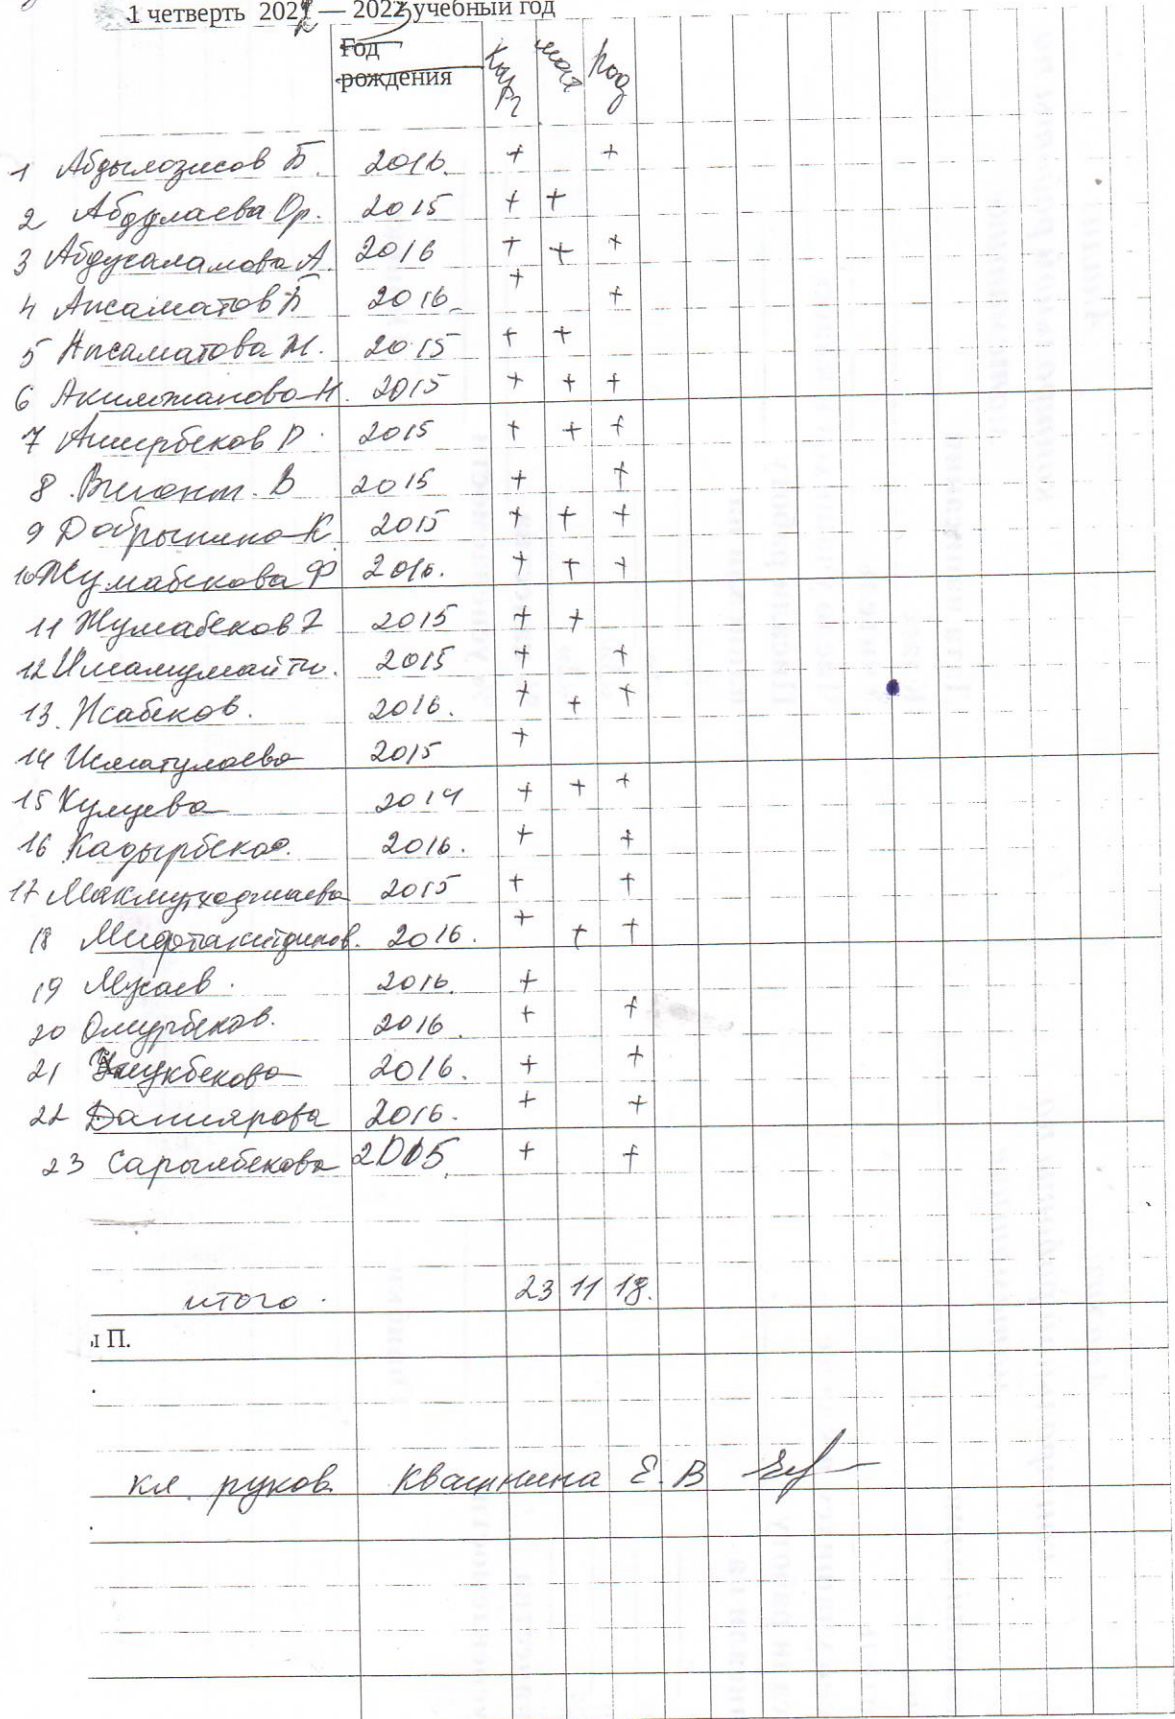 1 четверть 2022 — 2023 учебный год
Год рождения
1 Абдылозисов Б. 2016. + +
2 Абдулаева Ор. 2015 + +
3 Абдусаламова А. 2016 + + +
4 Апсаматов Б 2016 + +
5 Апсаматова М. 2015 + +
6 Акимжанова Н. 2015 + + +
7 Аширбеков Р. 2015 + + +
8 В 2015 + +
9 Добрынина К 2015 + + +
10 Жумабекова Ф 2016. + + +
11 Жумабеков 2015 + +
12 2015 + +
13. Исабеков. 2016. + + +
14 Исматулаева 2015 +
15 Кулуева 2014 + + +
16 Кадырбеков. 2016. + +
17 Макмутходжаева 2015 + +
18 2016. + + +
19 Мусаев. 2016. +
20 Омурбеков. 2016. + +
21 2016. + +
22 Даниярова 2016. + +
23 Сарылбекова 2015. + +
итого. 23 11 18.
ы П.
кл. руков Квашнина Е. В